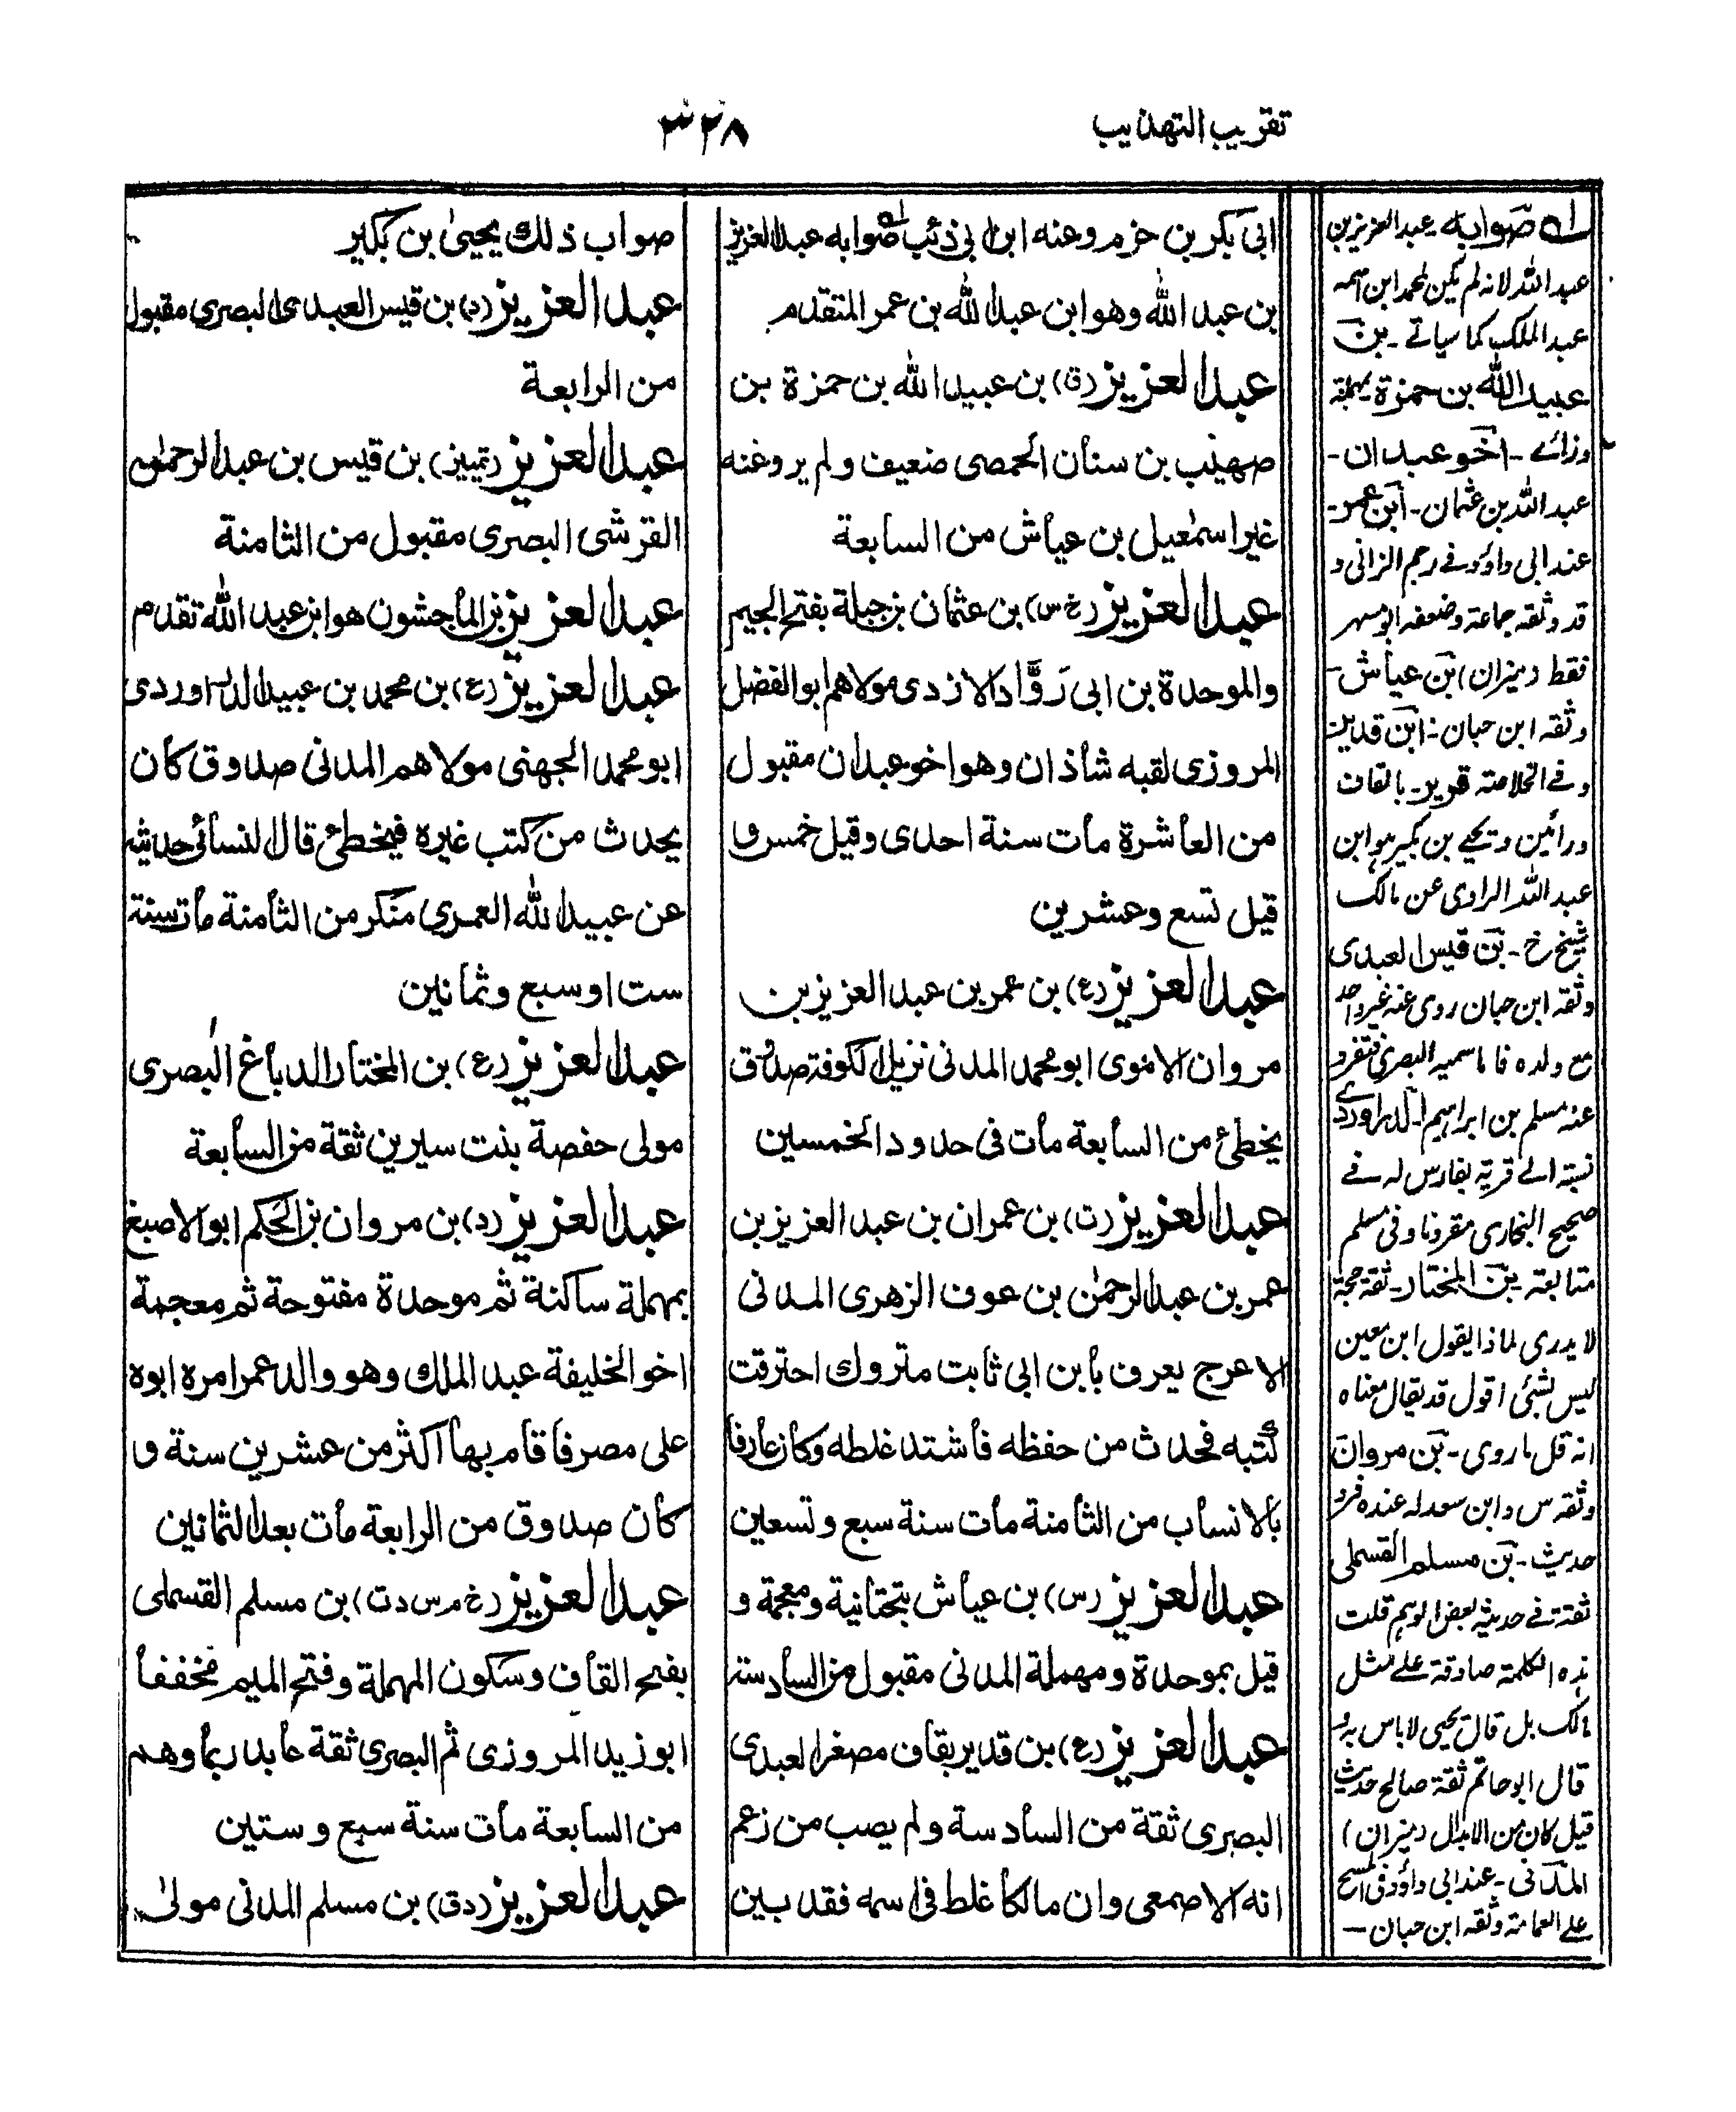 تقريب التهذيب
٣٢٨
ابى بكر بن حزم وعنه ابن ابى ذئب صوابه عبد العزيز
بن عبد الله وهو ابن عبد الله بن عمر المتقدم
عبد العزيز (ق) بن عبيد الله بن حمزة بن
صهيب بن سنان الحمصى ضعيف ولم يرو عنه
غير اسمعيل بن عياش من السابعة
عبد العزيز (خ س) بن عثمان بن جبلة بفتح الجيم
والموحدة بن ابى روّاد الازدى مولاهم ابو الفضل
المروزى لقبه شاذان وهو اخو عبدان مقبول
من العاشرة مات سنة احدى وقيل خمس و
قيل تسع وعشرين
عبد العزيز (ع) بن عمر بن عبد العزيز بن
مروان الاموى ابو محمد المدنى نزيل الكوفة صدوق
يخطئ من السابعة مات فى حدود الخمسين
عبد العزيز (ت) بن عمران بن عبد العزيز بن
عمر بن عبد الرحمٰن بن عوف الزهرى المدنى
الاعرج يعرف بابن ابى ثابت متروك احترقت
كتبه فحدث من حفظه فاشتد غلطه وكان عارفا
بالانساب من الثامنة مات سنة سبع وتسعين
عبد العزيز (س) بن عياش بتحتانية ومعجمة و
قيل بموحدة ومهملة المدنى مقبول من السادسة
عبد العزيز (ع) بن قدير بقاف مصغر العبدى
البصرى ثقة من السادسة ولم يصب من زعم
انه الاصمعى وان مالكا غلط فى اسمه فقد بين
صواب ذلك يحيىٰ بن بكير
عبد العزيز (د) بن قيس العبدى البصرى مقبول
من الرابعة
عبد العزيز (تمييز) بن قيس بن عبد الرحمٰن
القرشى البصرى مقبول من الثامنة
عبد العزيز بن الماجشون هو ابن عبد الله تقدم
عبد العزيز (ع) بن محمد بن عبيد الدراوردى
ابو محمد الجهنى مولاهم المدنى صدوق كان
يحدث من كتب غيره فيخطئ قال النسائى حديثه
عن عبيد الله العمرى منكر من الثامنة مات سنة
ست او سبع وثمانين
عبد العزيز (ع) بن المختار الدباغ البصرى
مولى حفصة بنت سيرين ثقة من السابعة
عبد العزيز (د) بن مروان بن الحكم ابو الاصبغ
بمهملة ساكنة ثم موحدة مفتوحة ثم معجمة
اخو الخليفة عبد الملك وهو والد عمر امره ابوه
على مصر فاقام بها اكثر من عشرين سنة و
كان صدوق من الرابعة مات بعد الثمانين
عبد العزيز (خ م س د ت) بن مسلم القسملى
بفتح القاف وسكون المهملة وفتح الميم مخففا
ابو زيد المروزى ثم البصرى ثقة عابد ربما وهم
من السابعة مات سنة سبع وستين
عبد العزيز (د ق) بن مسلم المدنى مولىٰ
له صوابه عبد العزيز بن
عبد الله لانه لم يكن لمحمد ابن اسمه
عبد الملك كما سياتے - بن
عبيد الله بن حمزة بمهملة
وزائے - اخو عبدان -
عبد الله بن عثمان - ابن عمر -
عند ابى داؤد فے رجم الزانى و
قد وثقه جماعة وضعفه ابو مسهر
فقط (ميزان) بن عياش -
وثقه ابن حبان - ابن قدير
وفے الخلاصة قرير - بالقاف
ورائين ويحيے بن بكير هو ابن
عبد الله الراوى عن مالك
شيخ خ - بن قيس العبدى
وثقه ابن حبان روى عنه غير واحد
مع ولده فاما سميه البصرى فتفرد
عنه مسلم بن ابراهيم - الدراوردے
نسبة الے قرية بفارس له فے
صحيح البخارى مقرونا وفى مسلم
متابعة - بن المختار - ثقة حجة
لا يدرى لماذا يقول ابن معين
ليس بشئ اقول قد يقال معناه
انه قل ما روى - بن مروان
وثقه س وابن سعد له عنده فرد
حديث - بن مسلم القسملى
ثقة فے حديثه بعض الوهم قلت
هذه الكلمة صادقة علے مثل
مالك بل قال يحيى لا باس به و
قال ابو حاتم ثقة صالح حديث
قيل كان من الابدال (ميزان)
المدنى - عند ابى داؤد فى المسح
علے العمامة وثقه ابن حبان -